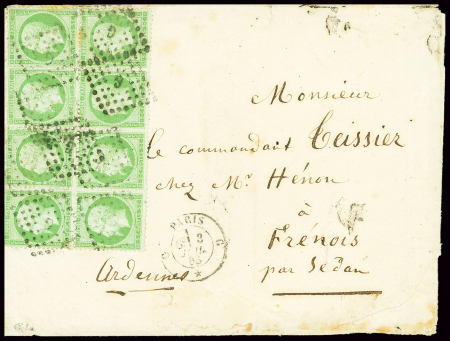 Monsieur
Le commandant Teissier
chez Mr Hénon
à
Frénois
par Sedan
Ardennes
PARIS